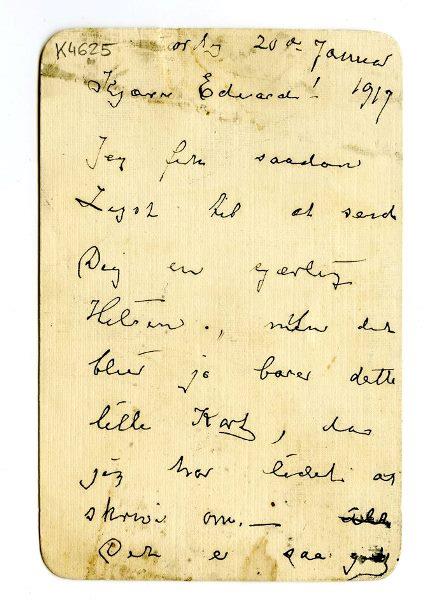 K4625
20de Januar
Kjære Edvard! 1917
Jeg fik saadan
Lyst til at send
Dig en kjærlig
Hilsen., men det
blir jo barer dette
lille Kort, da
jeg har lidet at
skrive om. —
Det er saa